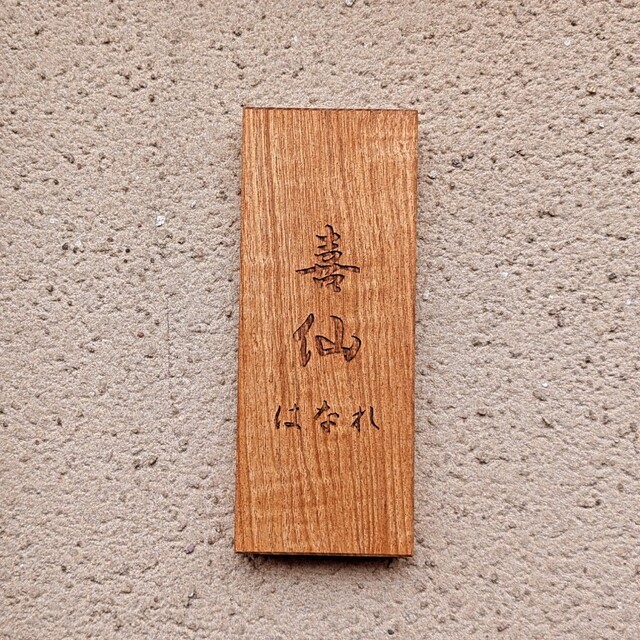 喜仙
はなれ